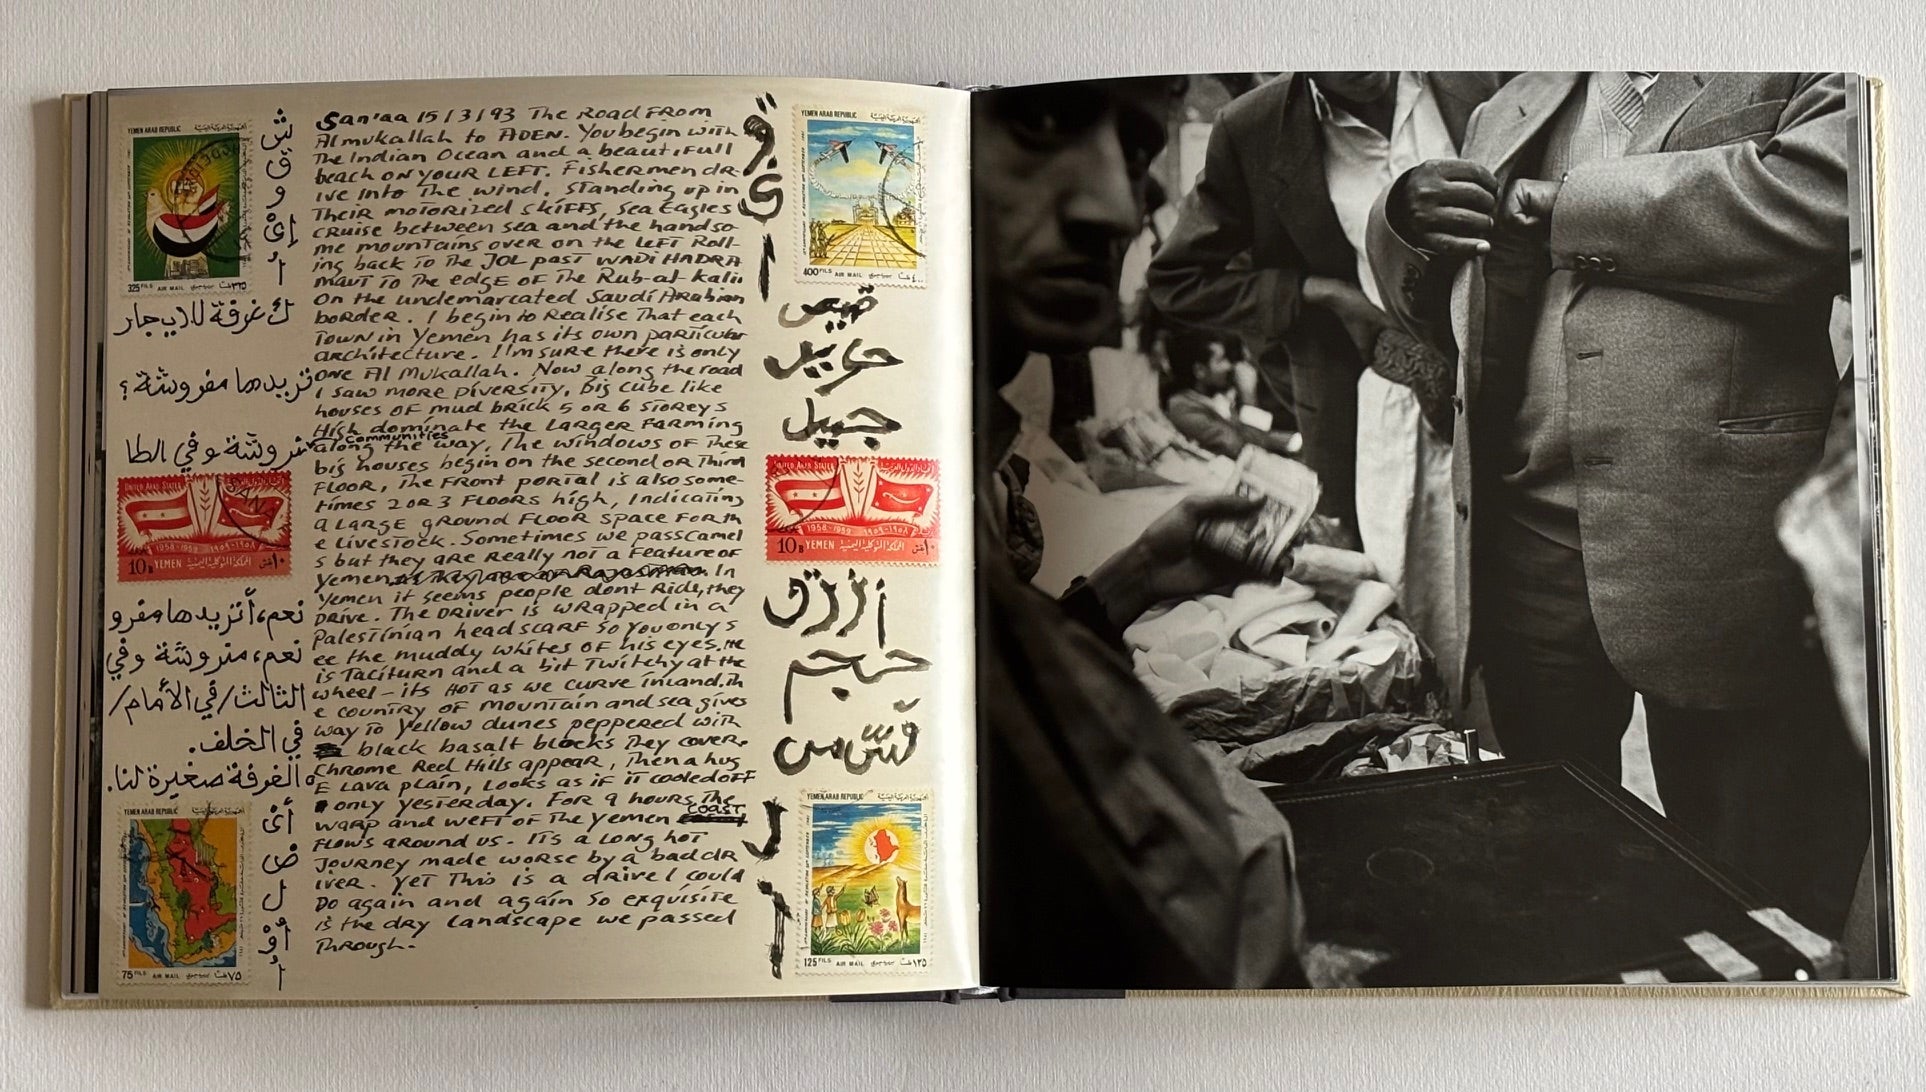 San'aa 15/3/93 The Road From
Almukallah to ADEN. You begin with
The Indian Ocean and a beautifull
beach on your LEFT. Fishermen dr-
ive into The wind, standing up in
Their motorized skiffs, Sea Eagles
cruise between sea and the handso-
me mountains over on the left Roll-
ing back to the JOL past WADI HADRA
maut to the edge of the Rub-al kalii
on the undemarcated Saudi Arabian
border. I begin to Realise That each
Town in Yemen has its own particular
architecture. I'm sure there is only
one Al Mukallah. Now along the road
I saw more diversity, Big cube like
houses of mud brick 5 or 6 storeys
High dominate the Larger Farming
communities
along the way, The windows of These
big houses begin on the second or Third
Floor, The Front portal is also some-
times 2 or 3 Floors high, Indicating
a Large ground Floor space For th
e Livestock. Sometimes we pass camel
s but they are Really not a Feature of
Yemen. In
Yemen it seems people dont Ride, they
Drive. The Driver is wrapped in a
Palestinian head scarf so you only s
ee the muddy whites of his eyes. He
is Taciturn and a bit Twitchy at the
wheel - its Hot as we curve inland. Th
e country of Mountain and sea gives
way to Yellow dunes peppered with
black basalt blocks They cover.
Chrome Red Hills appear, Then a hug
E Lava plain, Looks as if it cooled off
only yesterday. For 9 hours The
warp and weft of the Yemen COAST
Flows around us. Its a long hot
Journey made worse by a bad dr
iver. Yet This is a drive I could
Do again and again so exquisite
is the dry Landscape we passed
Through.
YEMEN ARAB REPUBLIC
325 FILS AIR MAIL ٣٢٥
غرفة للايجار
تريدها مفروشة؟
وفي الطا
UNITED ARAB STATES
1958-1959 ١٩٥٨-١٩٥٩
10 B YEMEN المملكة المتوكلية اليمنية ١٠
نعم، أتريدها مفرو
نعم، مفروشة وفي
الثالث/في الأمام/
في الخلف.
الغرفة صغيرة لنا.
YEMEN ARAB REPUBLIC
75 FILS AIR MAIL ٧٥
YEMEN ARAB REPUBLIC
400 FILS AIR MAIL
قميص
جميل
UNITED ARAB STATES
1958-1959 ١٩٥٨-١٩٥٩
10 B YEMEN المملكة المتوكلية اليمنية ١٠
أزرق
حجم
YEMEN ARAB REPUBLIC
125 FILS AIR MAIL ١٢٥